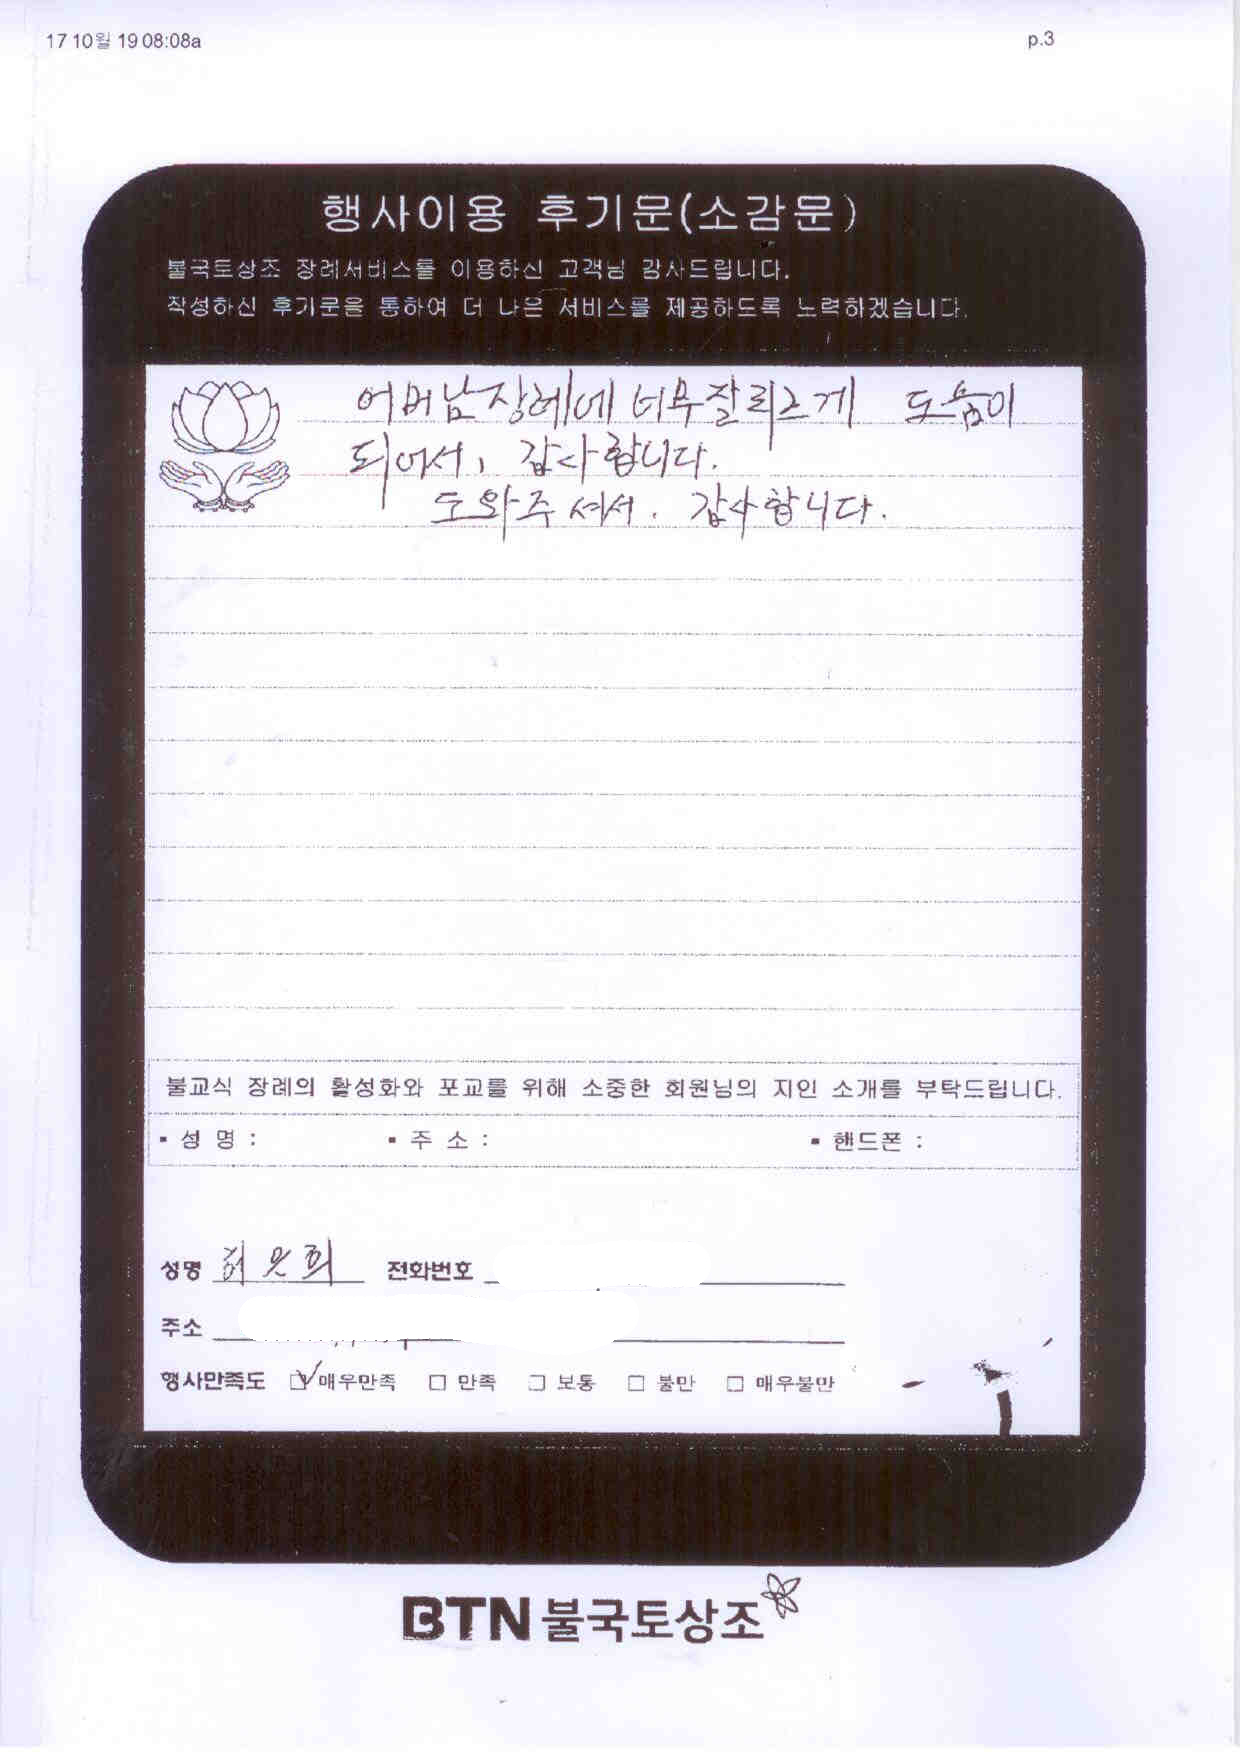 17 10월 19 08:08a p.3
행사이용 후기문(소감문)
불국토상조 장례서비스를 이용하신 고객님 감사드립니다.
작성하신 후기문을 통하여 더 나은 서비스를 제공하도록 노력하겠습니다.
어머님 장례에 너무 잘 도움이
되어서, 감사합니다.
도와주셔서. 감사합니다.
불교식 장례의 활성화와 포교를 위해 소중한 회원님의 지인 소개를 부탁드립니다.
▪ 성 명 : ▪ 주 소 : ▪ 핸드폰 :
성명 전화번호
주소
행사만족도 ☑ 매우만족 □ 만족 □ 보통 □ 불만 □ 매우불만
BTN 불국토상조